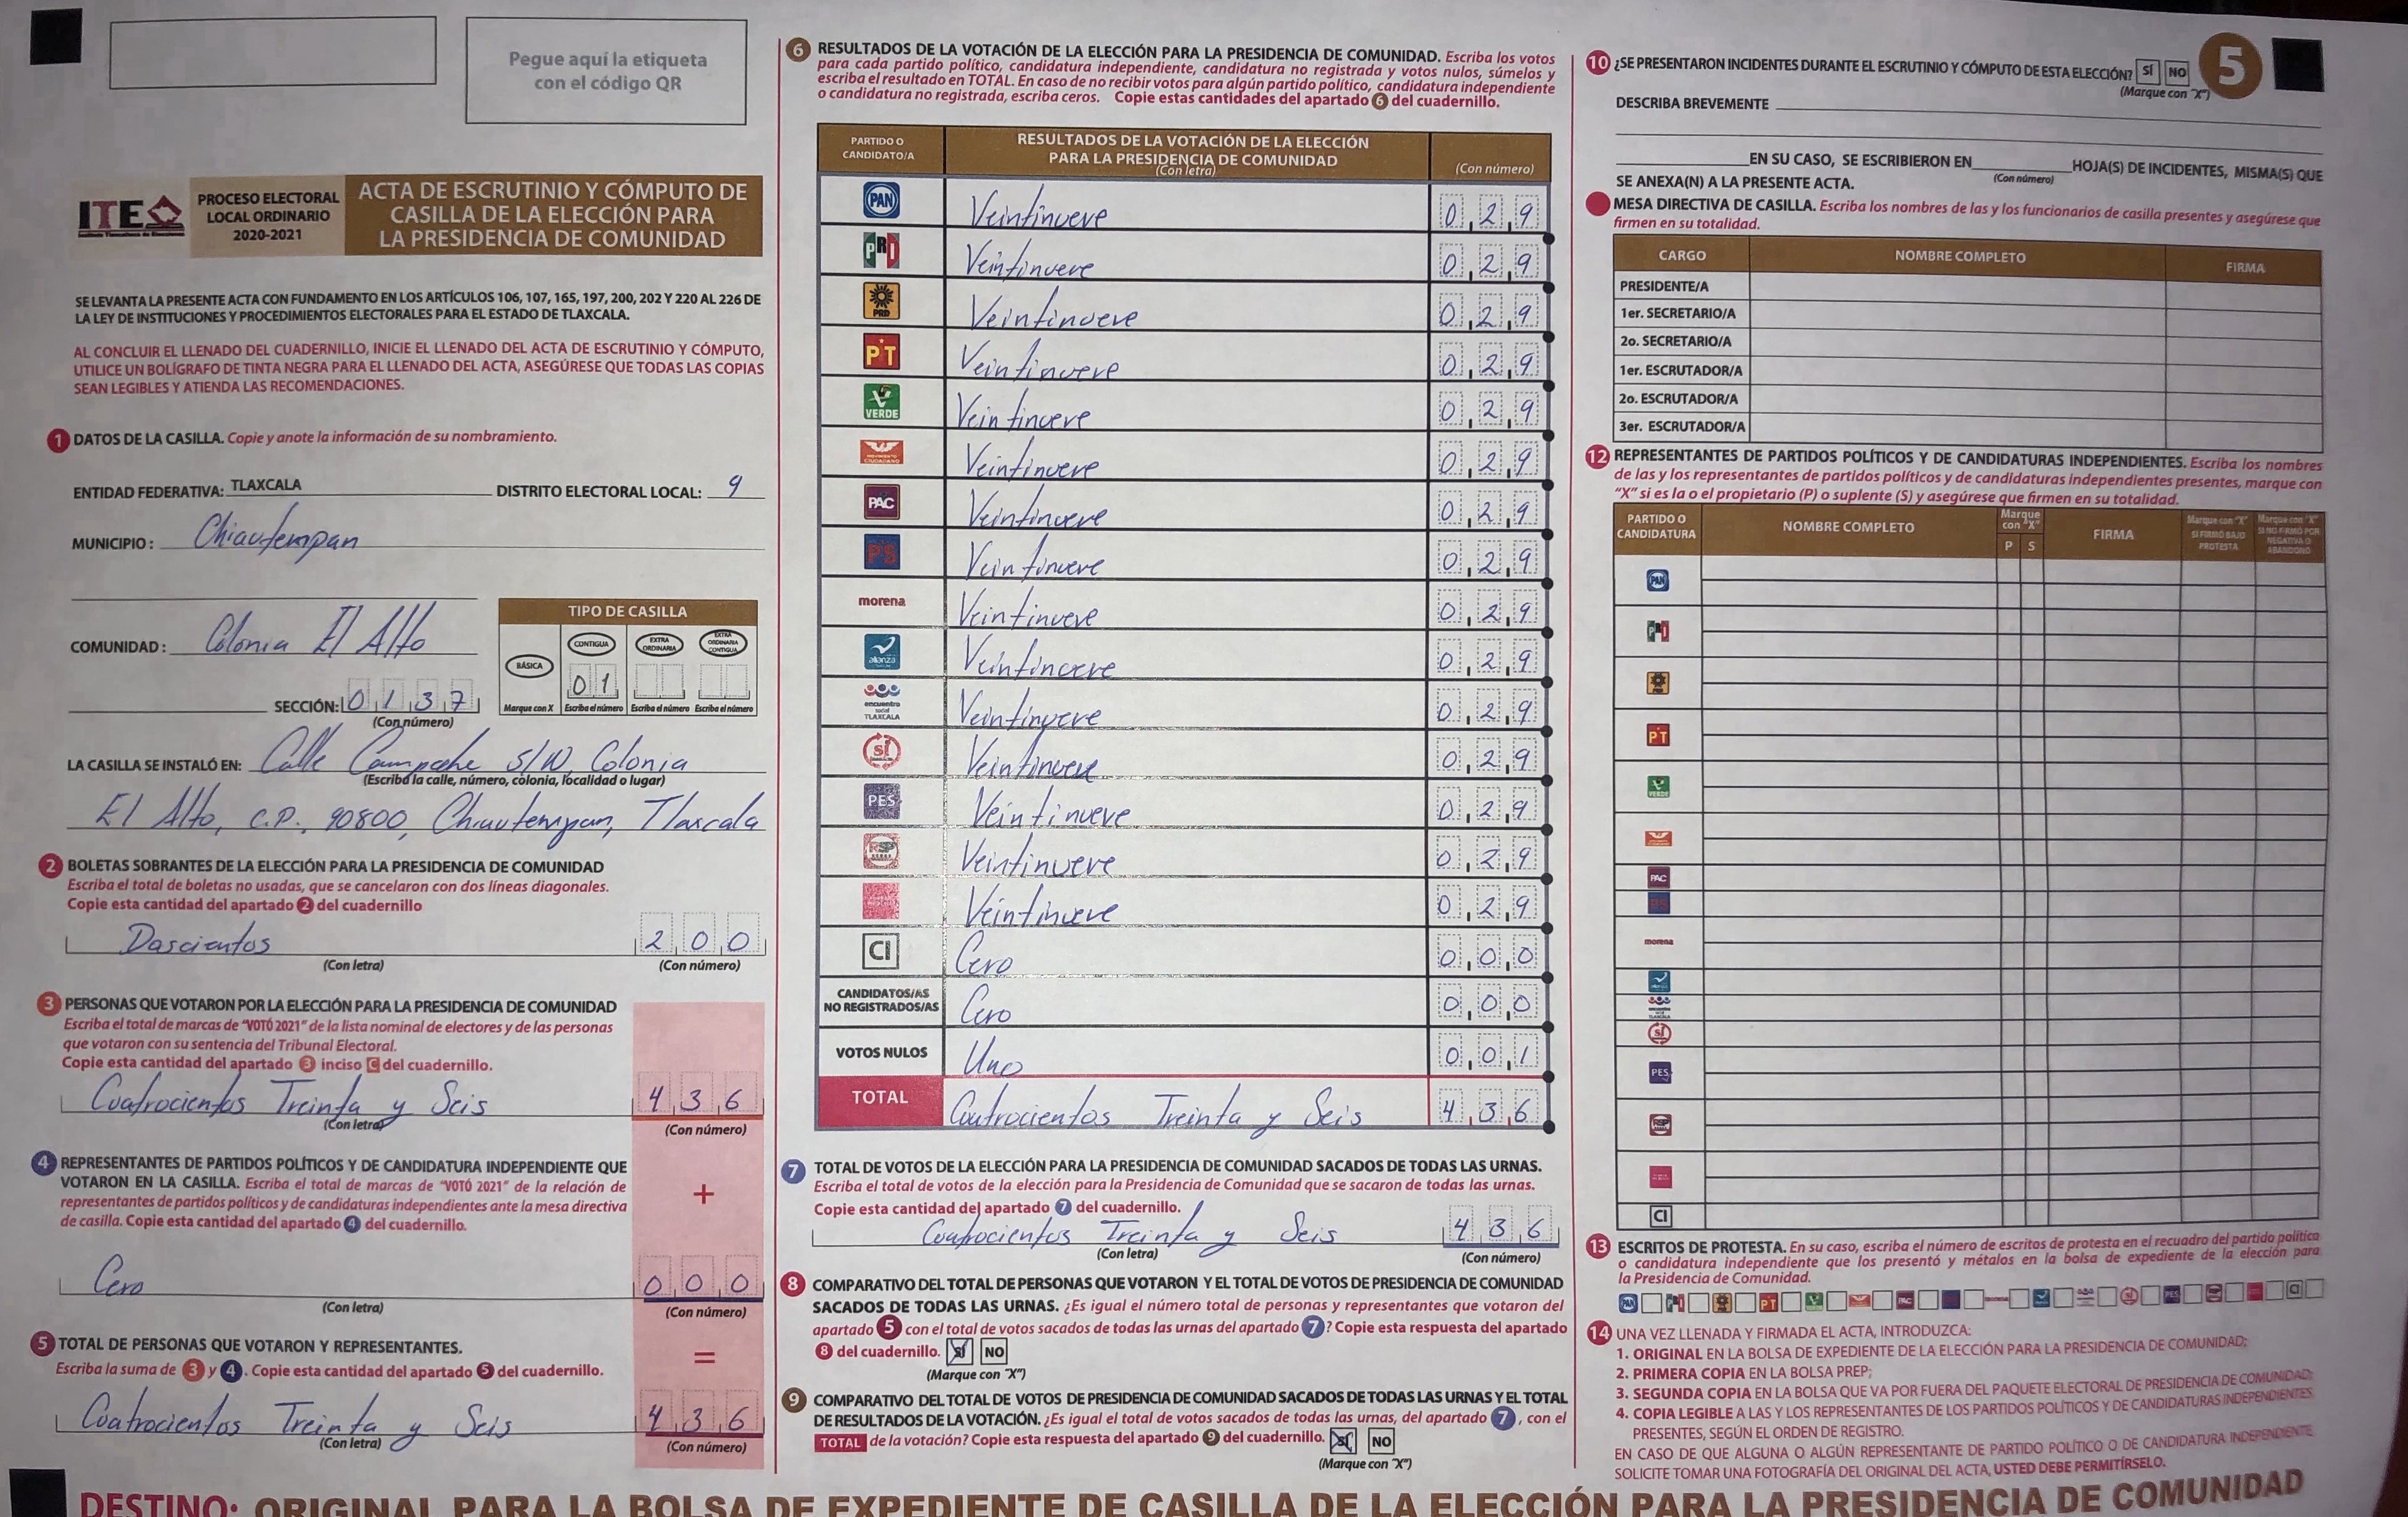 Pegue aquí la etiqueta
con el código QR
ITE
PROCESO ELECTORAL
LOCAL ORDINARIO
2020-2021
ACTA DE ESCRUTINIO Y CÓMPUTO DE
CASILLA DE LA ELECCIÓN PARA
LA PRESIDENCIA DE COMUNIDAD
SE LEVANTA LA PRESENTE ACTA CON FUNDAMENTO EN LOS ARTÍCULOS 106, 107, 165, 197, 200, 202 Y 220 AL 226 DE
LA LEY DE INSTITUCIONES Y PROCEDIMIENTOS ELECTORALES PARA EL ESTADO DE TLAXCALA.
AL CONCLUIR EL LLENADO DEL CUADERNILLO, INICIE EL LLENADO DEL ACTA DE ESCRUTINIO Y CÓMPUTO,
UTILICE UN BOLÍGRAFO DE TINTA NEGRA PARA EL LLENADO DEL ACTA, ASEGÚRESE QUE TODAS LAS COPIAS
SEAN LEGIBLES Y ATIENDA LAS RECOMENDACIONES.
1 DATOS DE LA CASILLA. Copie y anote la información de su nombramiento.
ENTIDAD FEDERATIVA: TLAXCALA DISTRITO ELECTORAL LOCAL: 9
MUNICIPIO: Chiautempan
COMUNIDAD: Colonia El Alto
TIPO DE CASILLA
BÁSICA CONTIGUA EXTRA ORDINARIA EXTRA ORDINARIA CONTIGUA
01
Marque con X Escriba el número Escriba el número Escriba el número
SECCIÓN: 0137
(Con número)
LA CASILLA SE INSTALÓ EN: Calle Campeche S/N, Colonia
(Escriba la calle, número, colonia, localidad o lugar)
El Alto, C.P. 90800, Chiautempan, Tlaxcala
2 BOLETAS SOBRANTES DE LA ELECCIÓN PARA LA PRESIDENCIA DE COMUNIDAD
Escriba el total de boletas no usadas, que se cancelaron con dos líneas diagonales.
Copie esta cantidad del apartado 2 del cuadernillo
Doscientos 200
(Con letra) (Con número)
3 PERSONAS QUE VOTARON POR LA ELECCIÓN PARA LA PRESIDENCIA DE COMUNIDAD
Escriba el total de marcas de "VOTÓ 2021" de la lista nominal de electores y de las personas
que votaron con su sentencia del Tribunal Electoral.
Copie esta cantidad del apartado 3 inciso C del cuadernillo.
Cuatrocientos Treinta y Seis 436
(Con letra) (Con número)
4 REPRESENTANTES DE PARTIDOS POLÍTICOS Y DE CANDIDATURA INDEPENDIENTE QUE
VOTARON EN LA CASILLA. Escriba el total de marcas de "VOTÓ 2021" de la relación de
representantes de partidos políticos y de candidaturas independientes ante la mesa directiva
de casilla. Copie esta cantidad del apartado 4 del cuadernillo.
+
Cero 000
(Con letra) (Con número)
5 TOTAL DE PERSONAS QUE VOTARON Y REPRESENTANTES.
Escriba la suma de 3 y 4. Copie esta cantidad del apartado 5 del cuadernillo.
=
Cuatrocientos Treinta y Seis 436
(Con letra) (Con número)
6 RESULTADOS DE LA VOTACIÓN DE LA ELECCIÓN PARA LA PRESIDENCIA DE COMUNIDAD. Escriba los votos
para cada partido político, candidatura independiente, candidatura no registrada y votos nulos, súmelos y
escriba el resultado en TOTAL. En caso de no recibir votos para algún partido político, candidatura independiente
o candidatura no registrada, escriba ceros. Copie estas cantidades del apartado 6 del cuadernillo.
PARTIDO O CANDIDATO/A RESULTADOS DE LA VOTACIÓN DE LA ELECCIÓN PARA LA PRESIDENCIA DE COMUNIDAD (Con letra) (Con número)
PAN Veintinueve 029
PRI Veintinueve 029
PRD Veintinueve 029
PT Veintinueve 029
VERDE Veintinueve 029
MOVIMIENTO CIUDADANO Veintinueve 029
PAC Veintinueve 029
PS Veintinueve 029
morena Veintinueve 029
alianza Veintinueve 029
encuentro social TLAXCALA Veintinueve 029
sí Veintinueve 029
PES Veintinueve 029
RSP Veintinueve 029
Veintinueve 029
CI Cero 000
CANDIDATOS/AS NO REGISTRADOS/AS Cero 000
VOTOS NULOS Uno 001
TOTAL Cuatrocientos Treinta y Seis 436
7 TOTAL DE VOTOS DE LA ELECCIÓN PARA LA PRESIDENCIA DE COMUNIDAD SACADOS DE TODAS LAS URNAS.
Escriba el total de votos de la elección para la Presidencia de Comunidad que se sacaron de todas las urnas.
Copie esta cantidad del apartado 7 del cuadernillo.
Cuatrocientos Treinta y Seis 436
(Con letra) (Con número)
8 COMPARATIVO DEL TOTAL DE PERSONAS QUE VOTARON Y EL TOTAL DE VOTOS DE PRESIDENCIA DE COMUNIDAD
SACADOS DE TODAS LAS URNAS. ¿Es igual el número total de personas y representantes que votaron del
apartado 5 con el total de votos sacados de todas las urnas del apartado 7? Copie esta respuesta del apartado
8 del cuadernillo. SÍ NO
(Marque con "X")
9 COMPARATIVO DEL TOTAL DE VOTOS DE PRESIDENCIA DE COMUNIDAD SACADOS DE TODAS LAS URNAS Y EL TOTAL
DE RESULTADOS DE LA VOTACIÓN. ¿Es igual el total de votos sacados de todas las urnas, del apartado 7, con el
TOTAL de la votación? Copie esta respuesta del apartado 9 del cuadernillo. SÍ NO
(Marque con "X")
10 ¿SE PRESENTARON INCIDENTES DURANTE EL ESCRUTINIO Y CÓMPUTO DE ESTA ELECCIÓN? SÍ NO
(Marque con "X")
5
DESCRIBA BREVEMENTE
EN SU CASO, SE ESCRIBIERON EN HOJA(S) DE INCIDENTES, MISMA(S) QUE
(Con número)
SE ANEXA(N) A LA PRESENTE ACTA.
MESA DIRECTIVA DE CASILLA. Escriba los nombres de las y los funcionarios de casilla presentes y asegúrese que
firmen en su totalidad.
CARGO NOMBRE COMPLETO FIRMA
PRESIDENTE/A
1er. SECRETARIO/A
2o. SECRETARIO/A
1er. ESCRUTADOR/A
2o. ESCRUTADOR/A
3er. ESCRUTADOR/A
12 REPRESENTANTES DE PARTIDOS POLÍTICOS Y DE CANDIDATURAS INDEPENDIENTES. Escriba los nombres
de las y los representantes de partidos políticos y de candidaturas independientes presentes, marque con
"X" si es la o el propietario (P) o suplente (S) y asegúrese que firmen en su totalidad.
PARTIDO O CANDIDATURA NOMBRE COMPLETO Marque con "X" P S FIRMA Marque con "X" SI FIRMÓ BAJO PROTESTA Marque con "X" SI NO FIRMÓ POR NEGATIVA O ABANDONO
PAN
PRI
PRD
PT
VERDE
PAC
PS
morena
PES
RSP
CI
13 ESCRITOS DE PROTESTA. En su caso, escriba el número de escritos de protesta en el recuadro del partido político
o candidatura independiente que los presentó y métalos en la bolsa de expediente de la elección para
la Presidencia de Comunidad.
14 UNA VEZ LLENADA Y FIRMADA EL ACTA, INTRODUZCA:
1. ORIGINAL EN LA BOLSA DE EXPEDIENTE DE LA ELECCIÓN PARA LA PRESIDENCIA DE COMUNIDAD;
2. PRIMERA COPIA EN LA BOLSA PREP;
3. SEGUNDA COPIA EN LA BOLSA QUE VA POR FUERA DEL PAQUETE ELECTORAL DE PRESIDENCIA DE COMUNIDAD;
4. COPIA LEGIBLE A LAS Y LOS REPRESENTANTES DE LOS PARTIDOS POLÍTICOS Y DE CANDIDATURAS INDEPENDIENTES
PRESENTES, SEGÚN EL ORDEN DE REGISTRO.
EN CASO DE QUE ALGUNA O ALGÚN REPRESENTANTE DE PARTIDO POLÍTICO O DE CANDIDATURA INDEPENDIENTE
SOLICITE TOMAR UNA FOTOGRAFÍA DEL ORIGINAL DEL ACTA, USTED DEBE PERMITÍRSELO.
DESTINO: ORIGINAL PARA LA BOLSA DE EXPEDIENTE DE CASILLA DE LA ELECCIÓN PARA LA PRESIDENCIA DE COMUNIDAD